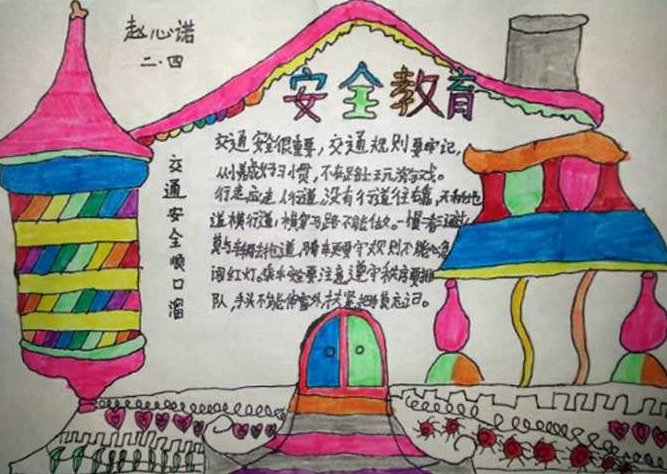 赵心诺
二.四
安全教育
交通安全顺口溜
交通安全很重要，交通规则要牢记，
从小养成好习惯，不在路上玩游戏。
行走应走人行道，没有行道往右靠，天桥地
道横行道，横穿马路不能做。一慢二看三通过，
莫与车辆抢道，骑车更要守规则不能
闯红灯。乘车要注意遵守秩序要排
队，手头不能伸窗外，扶紧把手莫忘记。